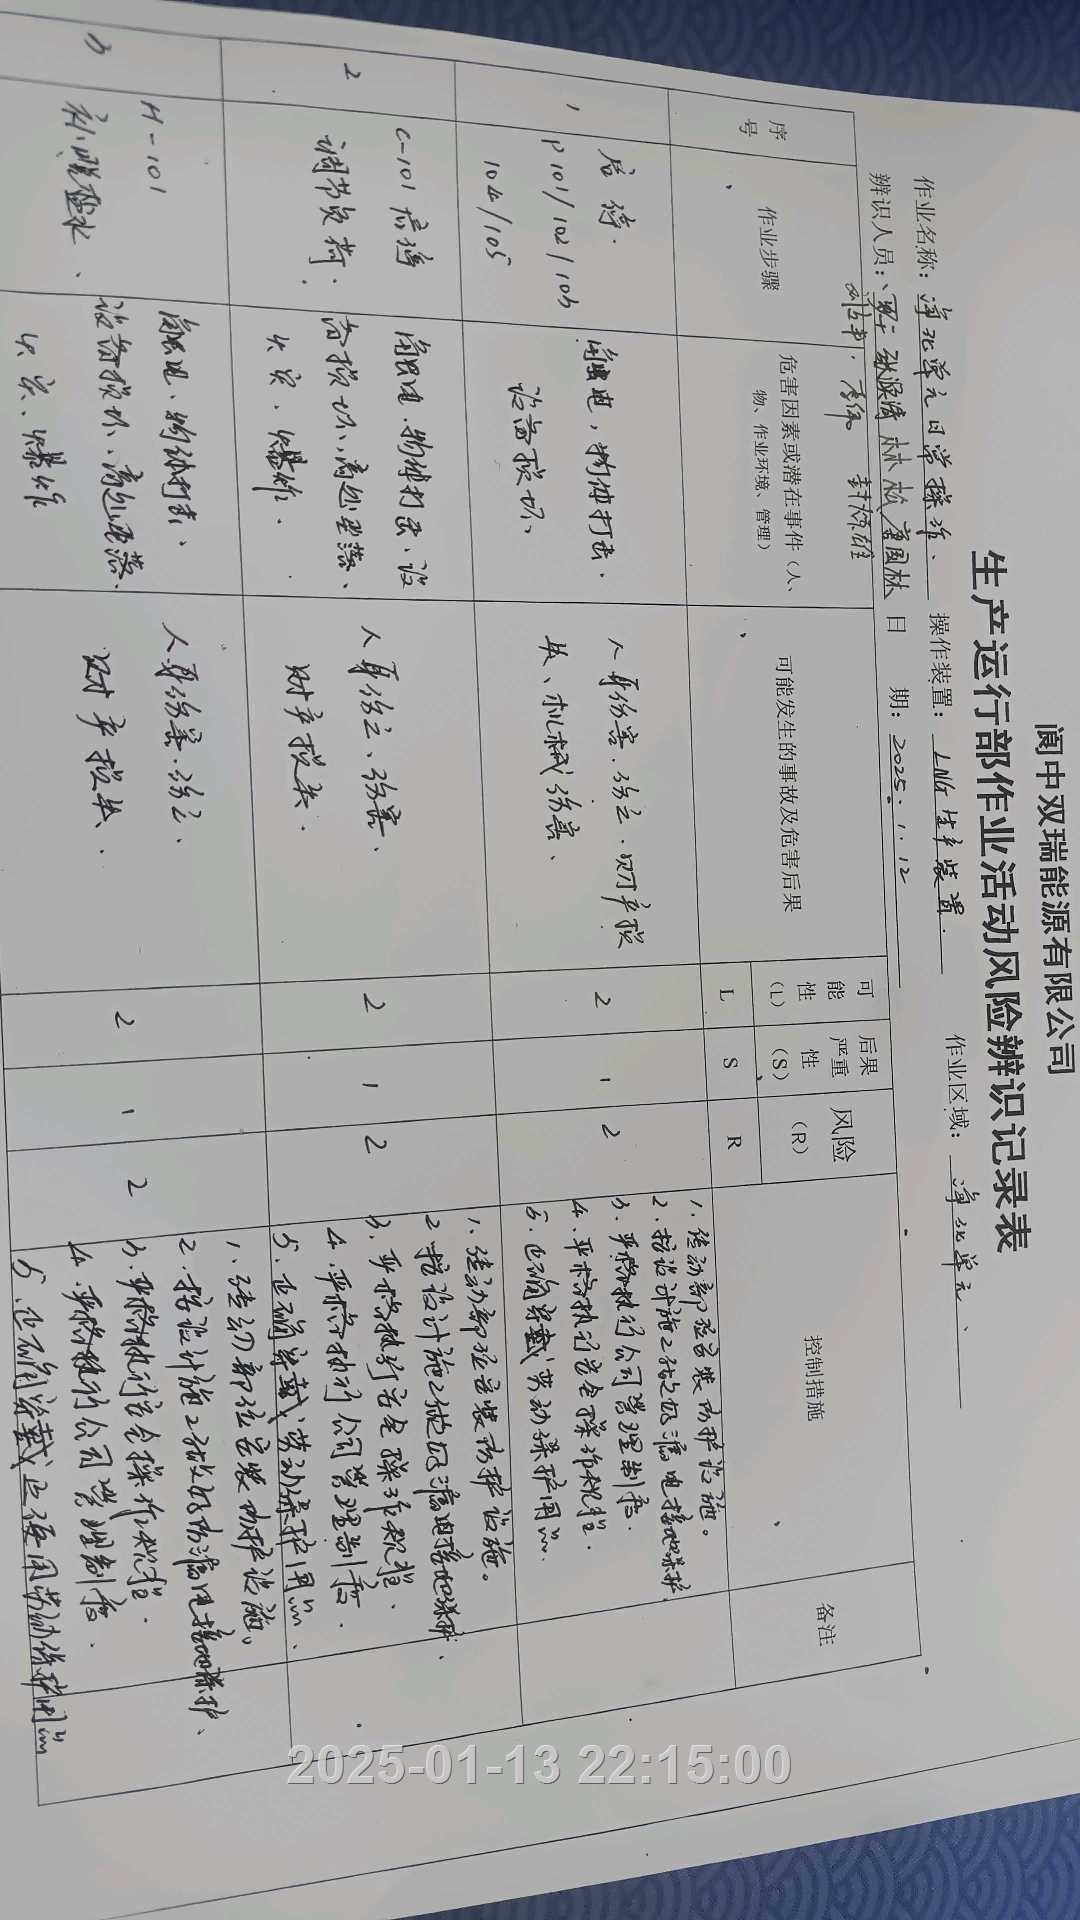 阆中双瑞能源有限公司
生产运行部作业活动风险辨识记录表
作业名称：净化单元日常操作、 操作装置：LNG生产装置. 作业区域：净化单元、
辨识人员： 林松 日 期：2025.1.12
序号 作业步骤 危害因素或潜在事件（人、物、作业环境、管理） 可能发生的事故及危害后果 可能性（L） 后果严重性（S） 风险（R） 控制措施 备注
L S R
1
启停.
P101/102/103
104/105
触电，物体打击.
设备损坏、
人身伤害.伤亡.财产损
失、机械伤害、
2 1 2
1.传动部位安装防护设施。
2.按设计施工做好漏电接地保护
3.严格执行公司管理制度.
4.严格执行安全操作规程.
5.正确穿戴劳动保护用品.
2
C-101启停
调节负荷.
触电.物体打击、设
备损坏、高处坠落、
火灾.爆炸.
人身伤亡、伤害.
财产损失.
2 1 2
1.传动部位安装防护设施。
2.按设计施工做好漏电接地保护.
3.严格执行安全操作规程、
4.严格执行公司管理制度.
5.正确穿戴劳动保护用品.
3
H-101
补脱盐水、
触电、物体打击、
设备损坏、高处坠落.
火灾、爆炸
人身伤害.伤亡.
财产损失.
2 1 2
1.传动部位安装防护设施。
2.按设计施工做好防漏电接地保护、
3.严格执行安全操作规程.
4.严格执行公司管理制度.
5.正确穿戴使用劳动保护用品
2025-01-13 22:15:00